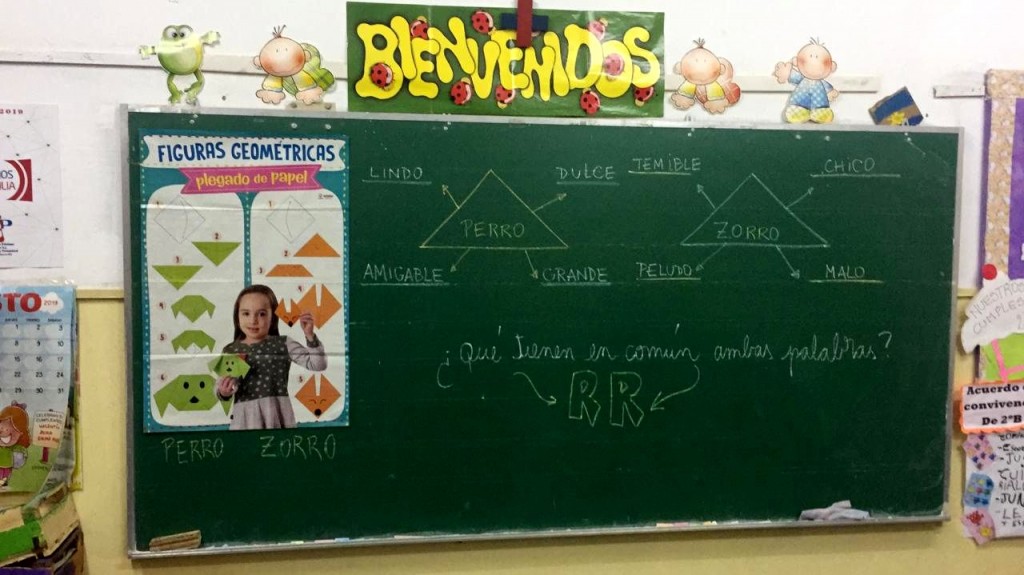 BIENVENIDOS
2019
FIGURAS GEOMÉTRICAS
plegado de papel
PERRO ZORRO
LINDO DULCE
PERRO
AMIGABLE GRANDE
TEMIBLE CHICO
ZORRO
PELUDO MALO
¿Qué tienen en común ambas palabras?
RR
STO 2019
Acuerdo
convivenc
De 2°B